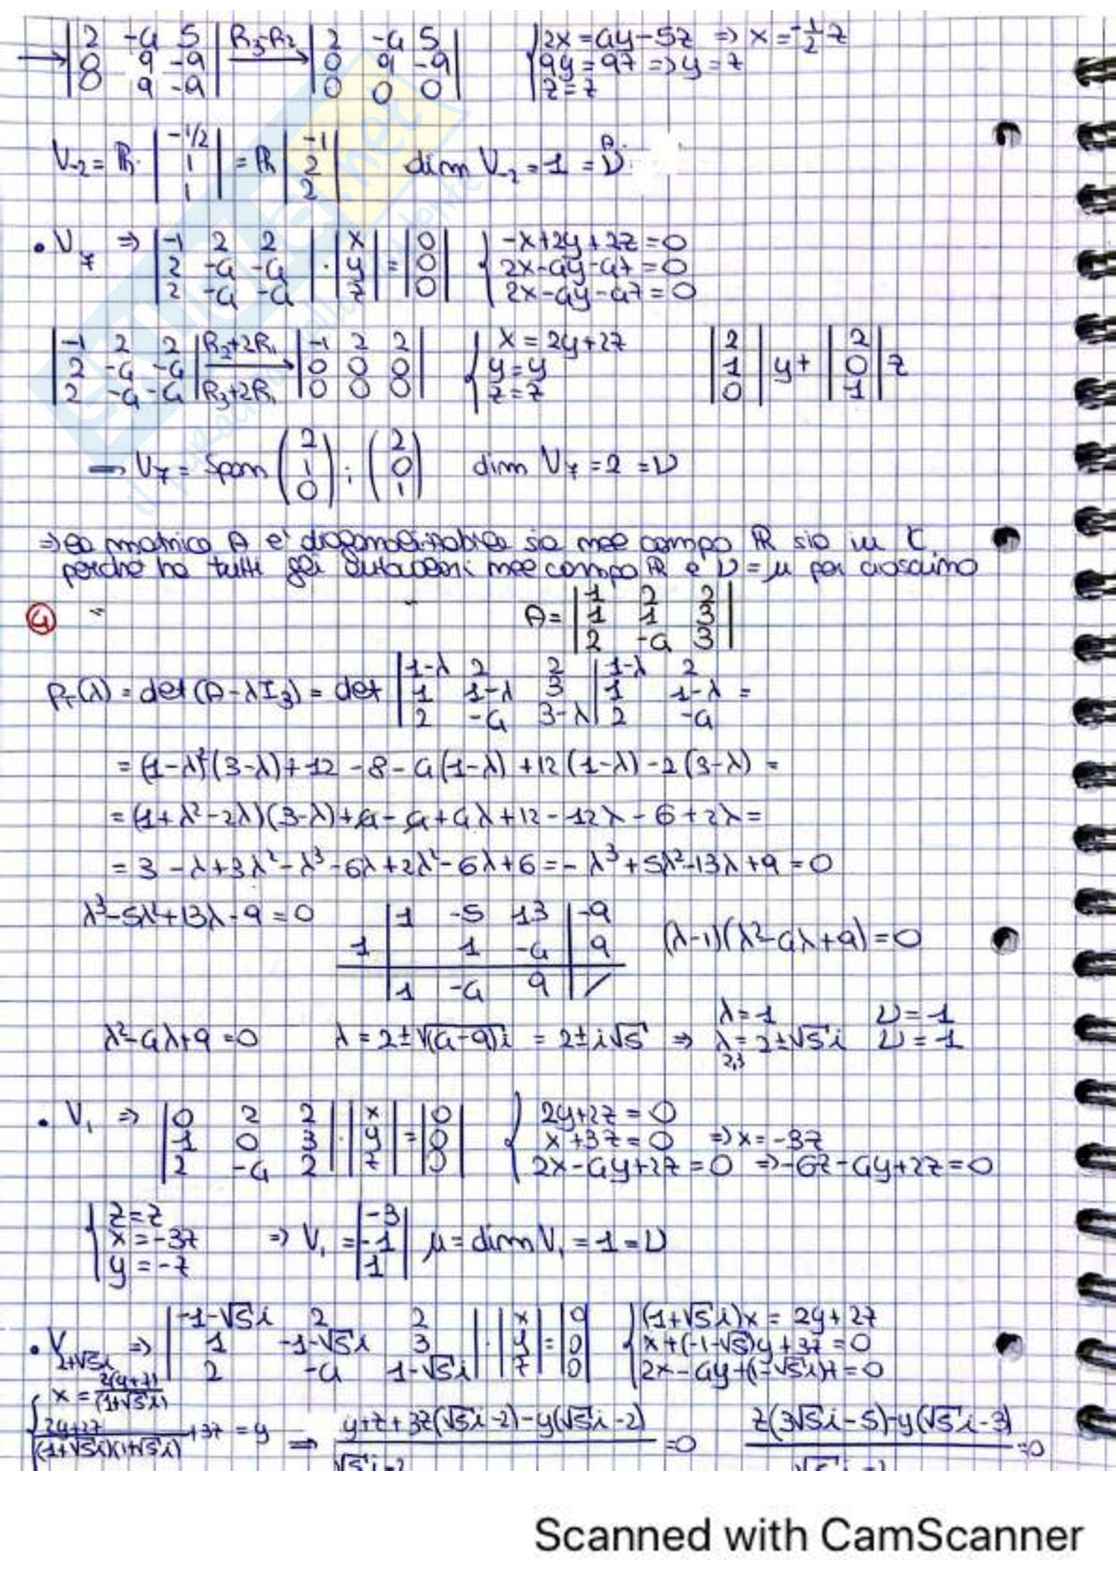 → |2 -4 5; 0 9 -9; 0 9 -9| R₃-R₂ → |2 -4 5; 0 9 -9; 0 0 0| { 2x = 4y - 5z ⇒ x = -1/2 z; 9y = 9z ⇒ y = z; z = z
V₋₂ = ℝ · |-1/2; 1; 1| = ℝ |-1; 2; 2| dim V₋₂ = 1 = ν
• V₇ ⇒ |-1 2 2; 2 -4 -4; 2 -4 -4| · |x; y; z| = |0; 0; 0| { -x+2y+2z=0; 2x-4y-4z=0; 2x-4y-4z=0
|-1 2 2; 2 -4 -4; 2 -4 -4| R₂+2R₁ → R₃+2R₁ |-1 2 2; 0 0 0; 0 0 0| { x = 2y+2z; y = y; z = z |2; 1; 0| y + |2; 0; 1| z
→ V₇ = Span (2; 1; 0) ; (2; 0; 1) dim V₇ = 2 = ν
⇒ la matrice A e' diagonalizzabile sia nel campo ℝ sia in ℂ
perché ha tutti gli autovalori nel campo ℝ e ν = μ per ciascuno
④ " " A = |1 2 2; 1 1 3; 2 -4 3|
P_T(λ) = det(A-λI₃) = det |1-λ 2 2; 1 1-λ 3; 2 -4 3-λ| 1-λ 2; 1 1-λ; 2 -4 =
= (1-λ)²(3-λ)+12 -8 -4(1-λ) +12(1-λ) -2(3-λ) =
= (1+λ²-2λ)(3-λ)+4-4+4λ+12-12λ-6+2λ =
= 3-λ+3λ²-λ³-6λ+2λ²-6λ+6 = -λ³+5λ²-13λ+9 = 0
λ³-5λ²+13λ-9 = 0 | 1 -5 13 | -9; 1 | 1 -4 | 9; | 1 -4 9 | / (λ-1)(λ²-4λ+9) = 0
λ²-4λ+9 = 0 λ = 2±√(4-9)i = 2±i√5 ⇒ λ = 1 ν = 1; λ₂,₃ = 2±√5i ν = 1
• V₁ ⇒ |0 2 2; 1 0 3; 2 -4 2| · |x; y; z| = |0; 0; 0| { 2y+2z = 0; x+3z = 0 ⇒ x = -3z; 2x-4y+2z = 0 ⇒ -6z-4y+2z = 0
{ z = z; x = -3z; y = -z ⇒ V₁ = |-3; -1; 1| μ = dim V₁ = 1 = ν
• V₂₊√5i ⇒ |-1-√5i 2 2; 1 -1-√5i 3; 2 -4 1-√5i| · |x; y; z| = |0; 0; 0| { (1+√5i)x = 2y+2z; x+(-1-√5)y+3z = 0; 2x-4y+(1-√5i)z = 0
{ x = 2(y+z)/(1+√5i); 2y+2z/(1+√5i)(1+√5i) + 3z = y ⇒ y+z+3z(√5i-2)-y(√5i-2)/√5i-2 = 0 z(3√5i-5)-y(√5i-3)/√5i-2 = 0
Scanned with CamScanner